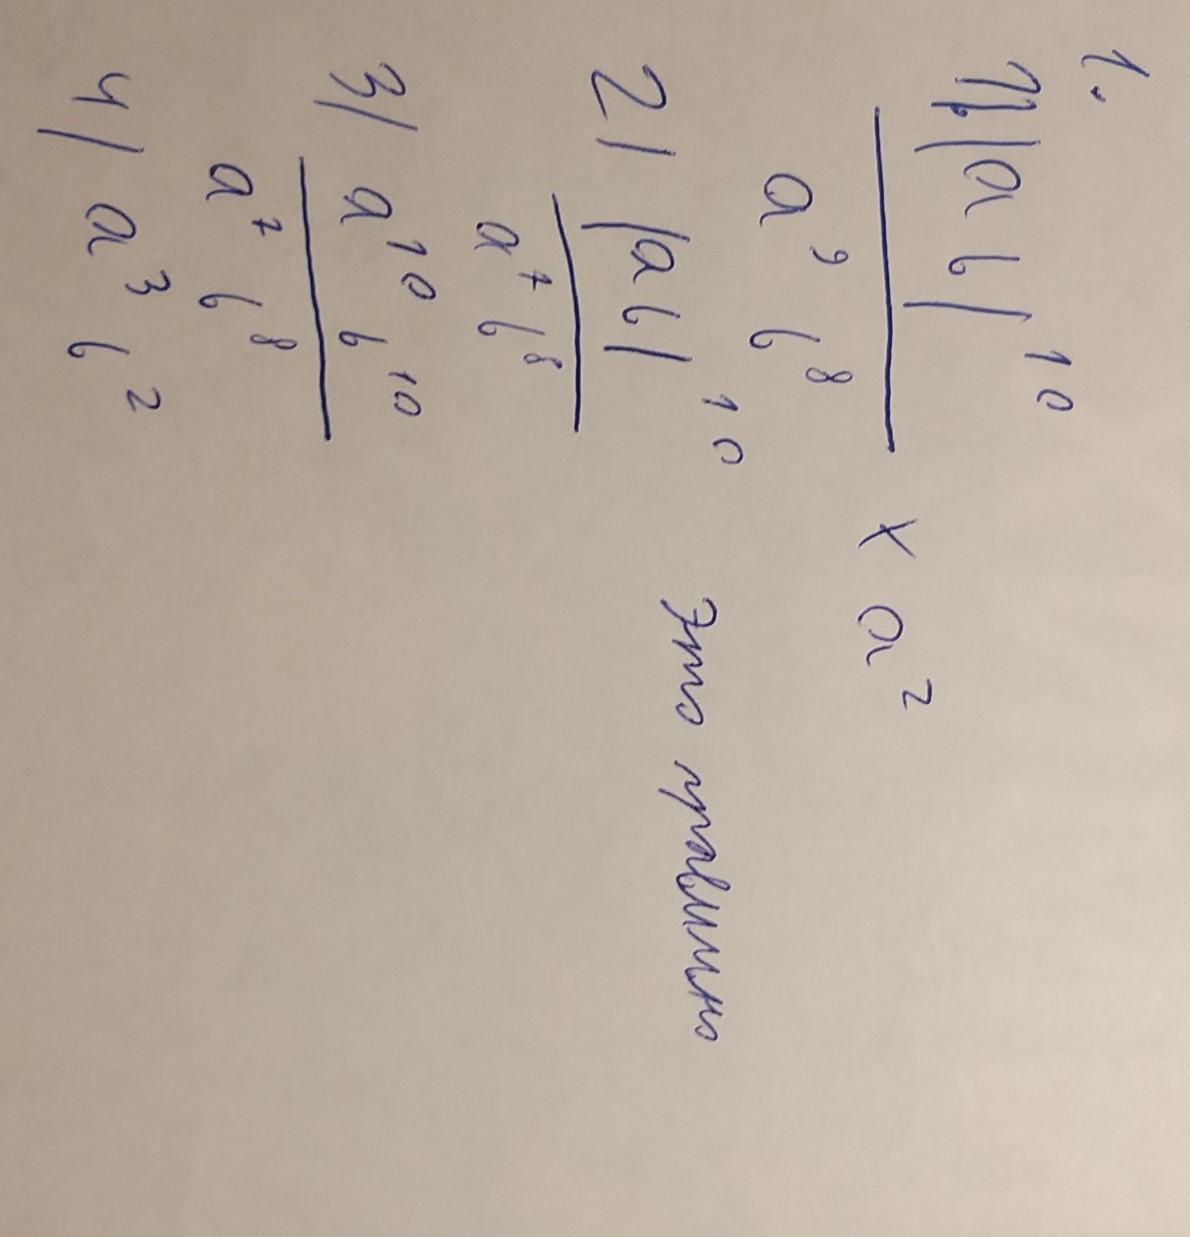 1.
1) (ab)^10
a^9 b^8 × a^2
2) (ab)^10
a^7 b^8
Это правильно
3) a^10 b^10
a^7 b^8
4) a^3 b^2